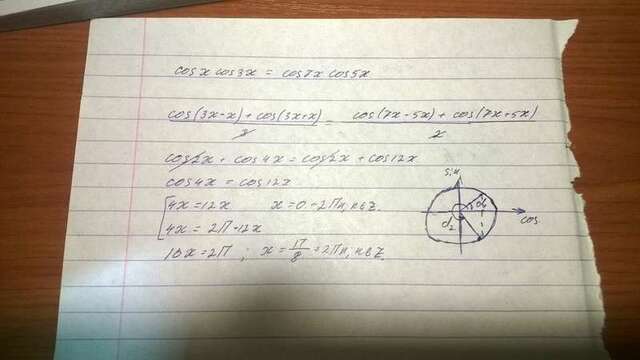 cos x cos 3x = cos 7x cos 5x
cos(3x-x) + cos(3x+x) / 2 = cos(7x-5x) + cos(7x+5x) / 2
cos 2x + cos 4x = cos 2x + cos 12x
cos 4x = cos 12x
4x = 12x x = 0 - 2πn, n∈Z.
4x = 2π - 12x
16x = 2π ; x = π/8 = 2πn, n∈Z.
sin
d1
d2
cos